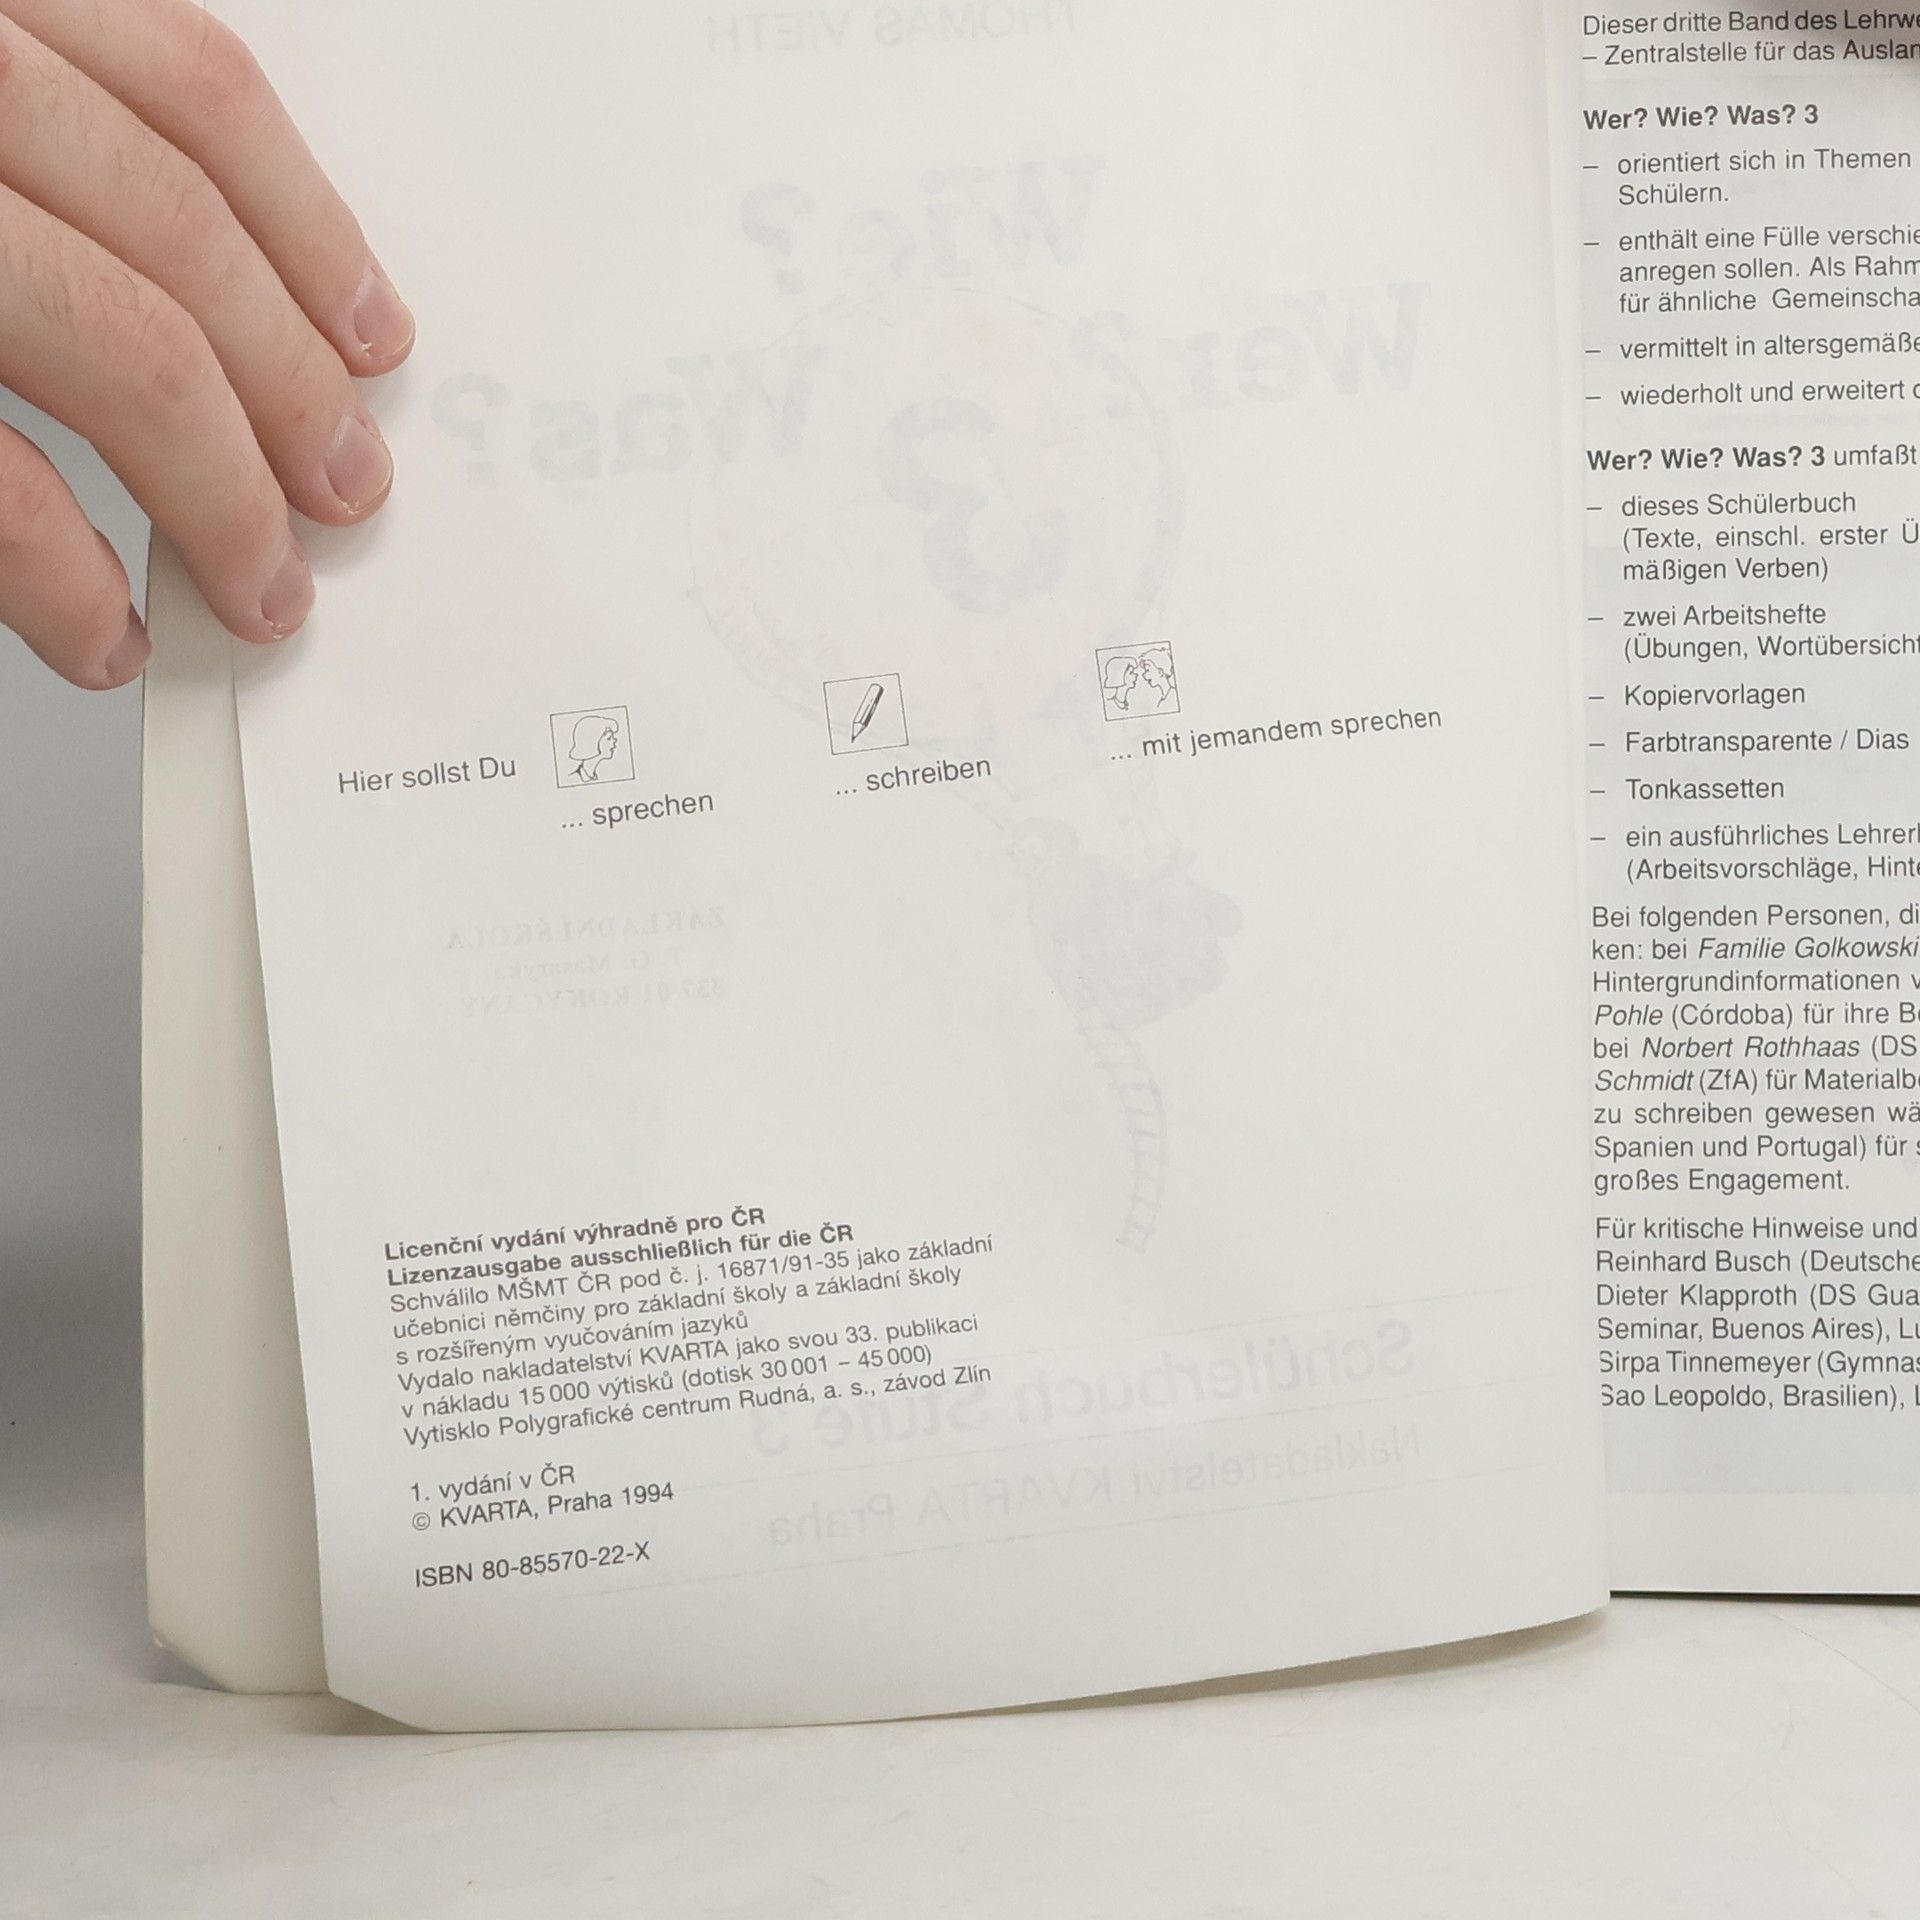 Hier sollst Du
... sprechen
... schreiben
... mit jemandem sprechen
Licenční vydání výhradně pro ČR
Lizenzausgabe ausschließlich für die ČR
Schválilo MŠMT ČR pod č. j. 16871/91-35 jako základní
učebnici němčiny pro základní školy a základní školy
s rozšířeným vyučováním jazyků
Vydalo nakladatelství KVARTA jako svou 33. publikaci
v nákladu 15 000 výtisků (dotisk 30 001 – 45 000)
Vytisklo Polygrafické centrum Rudná, a. s., závod Zlín
1. vydání v ČR
© KVARTA, Praha 1994
ISBN 80-85570-22-X
THOMAS VIETH
Wie?
Wer?
Was?
3
ZÁKLADNÍ ŠKOLA
T. G. Masaryka
337 01 ROKYCANY
Schülerbuch Stufe 3
Nakladatelství KVARTA Praha
Dieser dritte Band des
– Zentralstelle für das
Wer? Wie? Was? 3
– orientiert sich in Themen
Schülern.
– enthält eine Fülle
anregen sollen. Als
für ähnliche
– vermittelt in
– wiederholt und erweitert
Wer? Wie? Was? 3 umfaßt
– dieses Schülerbuch
(Texte, einschl. erster
mäßigen Verben)
– zwei Arbeitshefte
(Übungen,
– Kopiervorlagen
– Farbtransparente / Dias
– Tonkassetten
– ein ausführliches
(Arbeitsvorschläge,
Bei folgenden Personen,
ken: bei Familie Golkowski
Hintergrundinformationen
Pohle (Córdoba) für ihre
bei Norbert Rothhaas (DS
Schmidt (ZfA) für
zu schreiben gewesen
Spanien und Portugal) für
großes Engagement.
Für kritische Hinweise und
Reinhard Busch
Dieter Klapproth (DS
Seminar, Buenos Aires),
Sirpa Tinnemeyer
Sao Leopoldo, Brasilien),